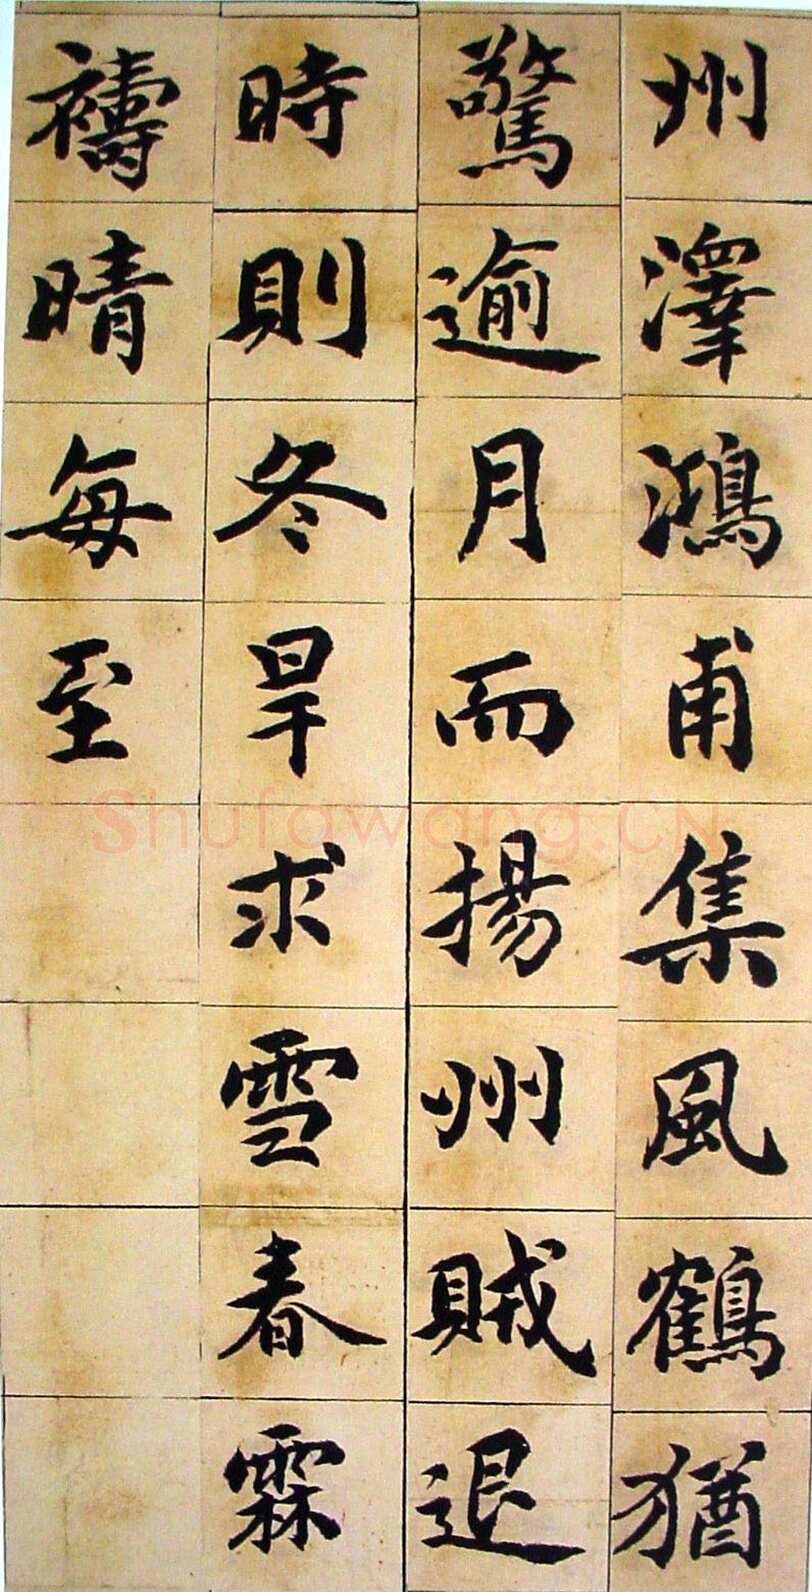 州澤鴻甫集風鶴猶
驚逾月而揚州賊退
時則冬旱求雪春霖
禱晴每至
Shufawang.CN